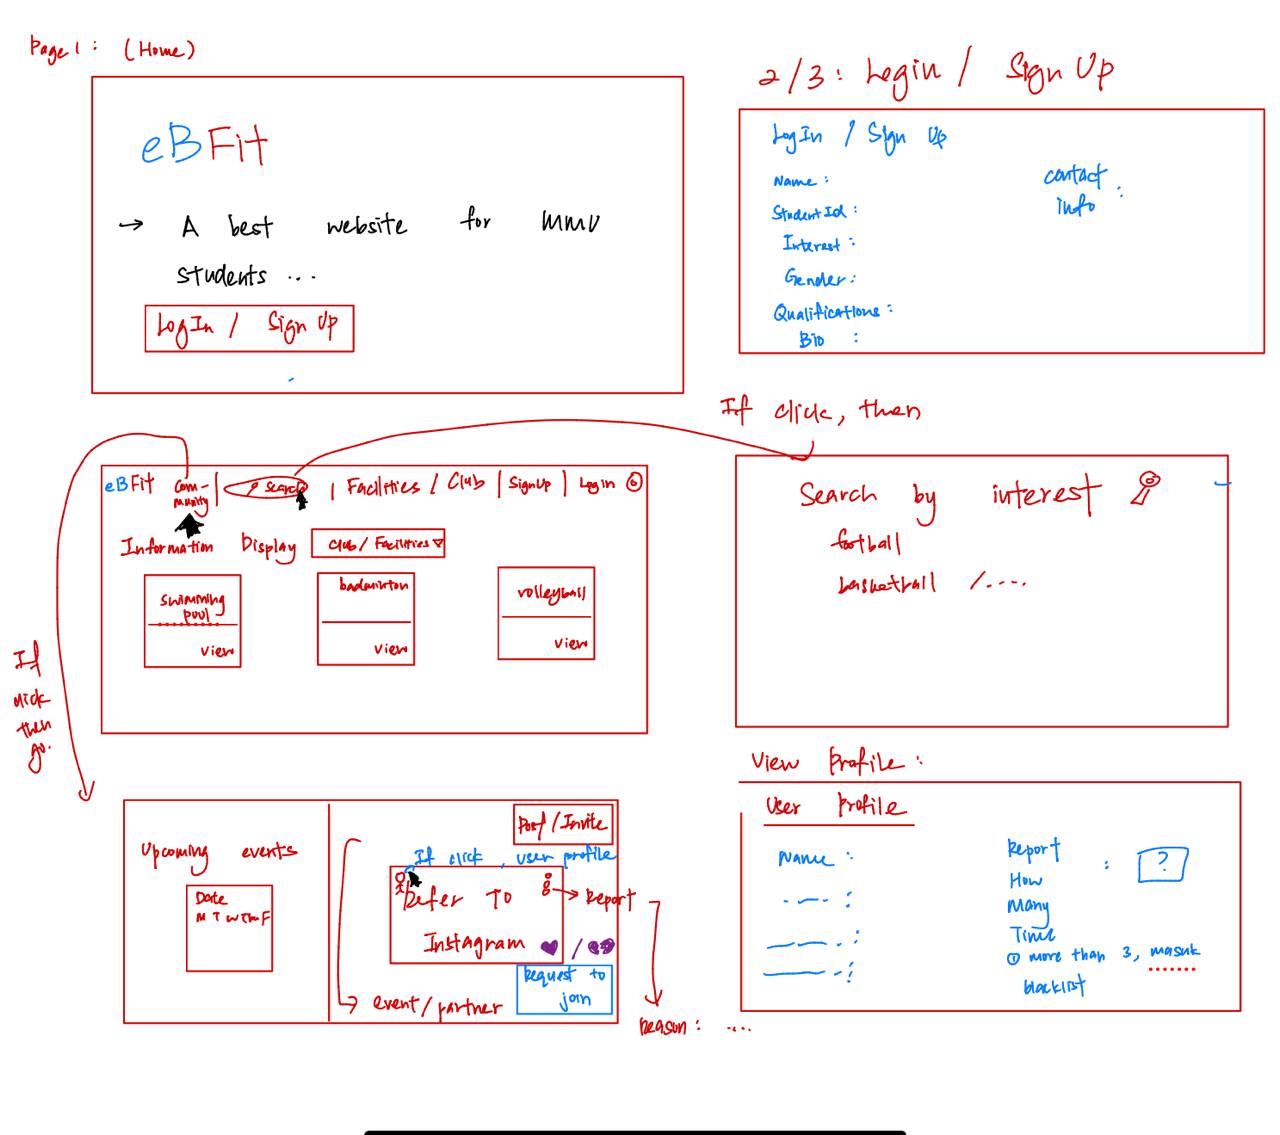 Page 1 : (Home)
eBFit
→ A best website for MMU
students ...
LogIn / Sign Up
2/3 : Login / Sign Up
LogIn / Sign Up
Name :
Student Id :
Interest :
Gender :
Qualifications :
Bio :
contact
info :
If click, then
eBFit Com-
munity | Search | Facilities / Club | SignUp | Login
Information Display Club / Facilities ▽
swimming
pool
view
badminton
view
volleyball
view
If
click
then
go.
Search by interest
football
basketball / ....
Upcoming events
Date
M T W Th F
Post / Invite
If click, user profile
Refer To
Instagram ♥ /
→ Report
Request to
join
event / partner
Reason : ....
View Profile :
User Profile
Name :
Report
How
Many
Time : ?
① more than 3, masuk
blacklist